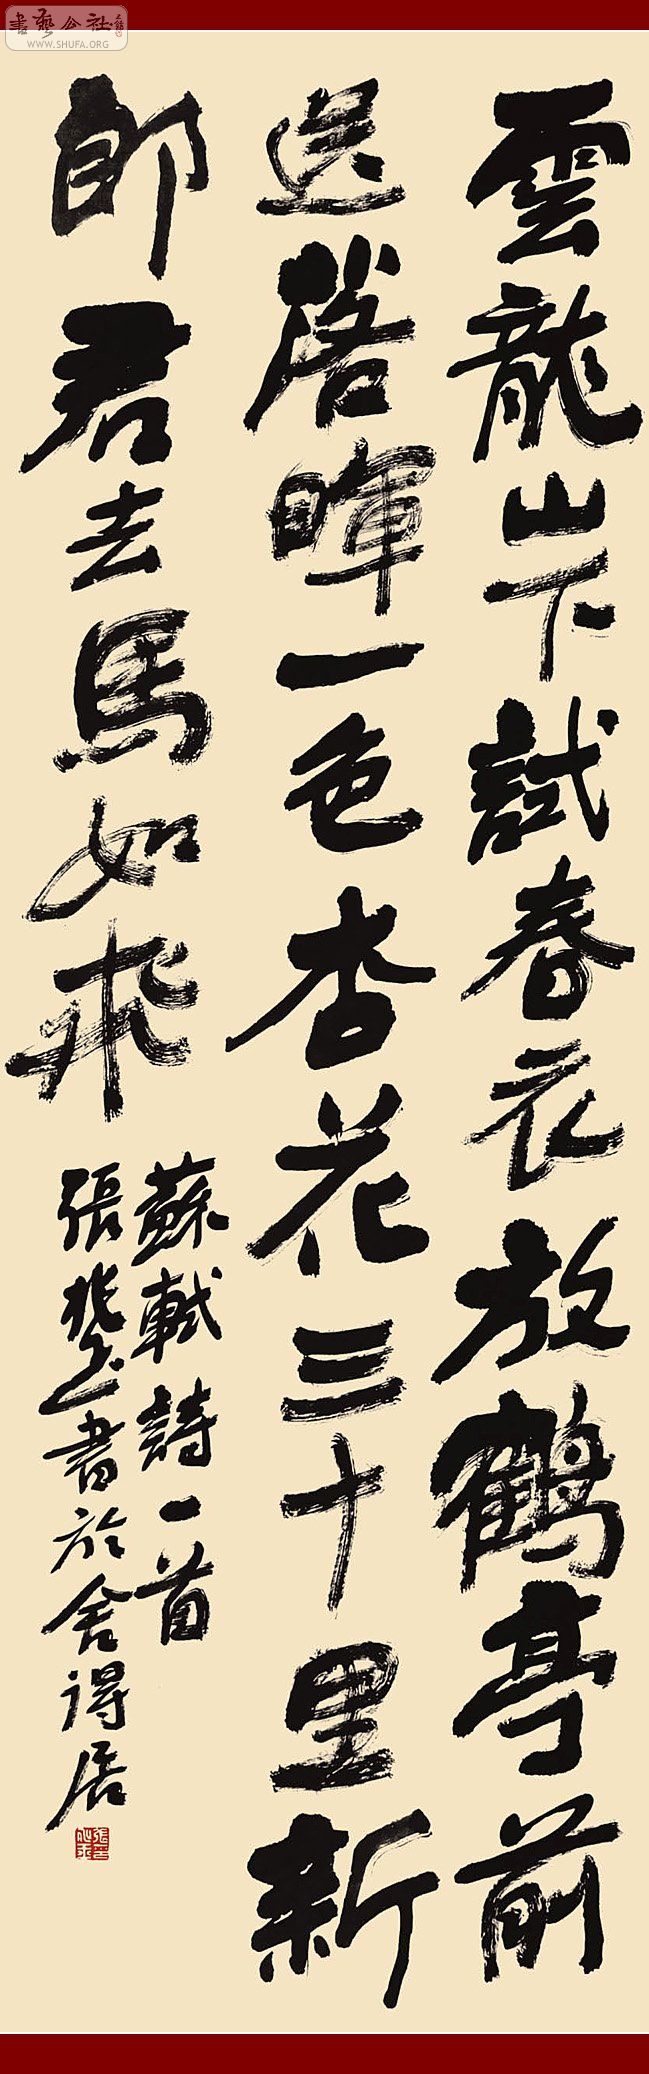 書藝公社
WWW.SHUFA.ORG
雲龍山下試春衣放鶴亭前
送落暉一色杏花三十里新
郎君去馬如飛
蘇軾詩一首
張 書於舍得居